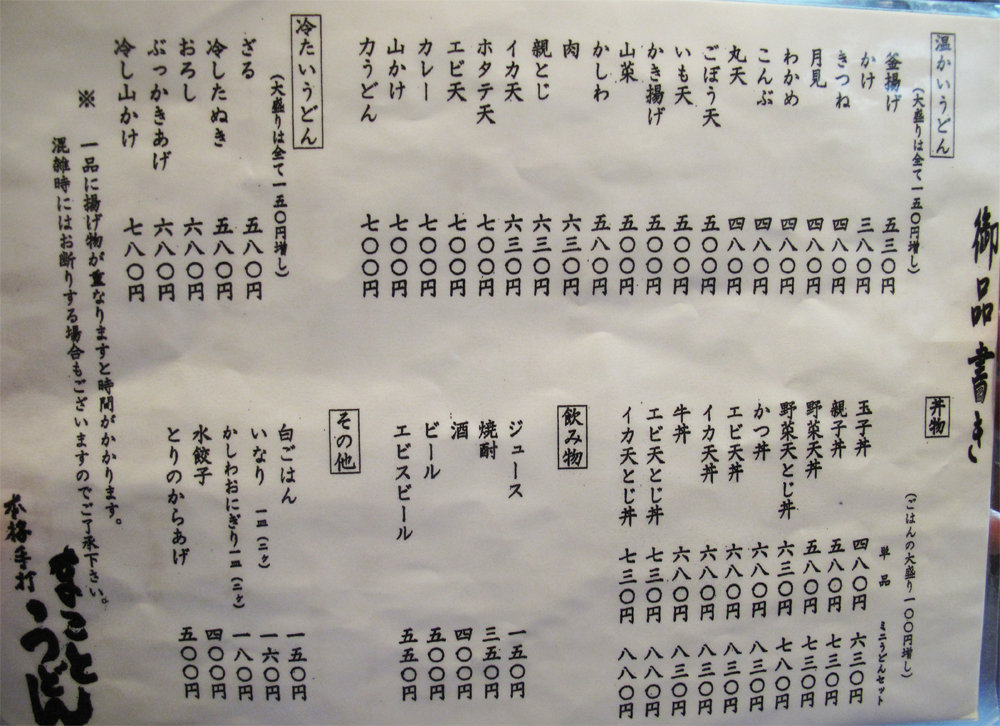 御品書き
温かいうどん
(大盛りは全て一五〇円増し)
釜揚げ 五三〇円
かけ 三八〇円
きつね 四八〇円
月見 四八〇円
わかめ 四八〇円
こんぶ 四八〇円
丸天 四八〇円
ごぼう天 五〇〇円
いも天 五〇〇円
かき揚げ 五〇〇円
山菜 五〇〇円
かしわ 五八〇円
肉 六三〇円
親とじ 六三〇円
イカ天 六三〇円
ホタテ天 七〇〇円
エビ天 七〇〇円
カレー 七〇〇円
山かけ 七〇〇円
力うどん 七〇〇円
冷たいうどん
(大盛りは全て一五〇円増し)
ざる 五八〇円
冷したぬき 五八〇円
おろし 六八〇円
ぶっかきあげ 六八〇円
冷し山かけ 七八〇円
丼物
(ごはんの大盛り一〇〇円増し)
単品 ミニうどんセット
玉子丼 四八〇円 六三〇円
親子丼 五八〇円 七三〇円
野菜天丼 五八〇円 七三〇円
野菜天とじ丼 六三〇円 七八〇円
かつ丼 六八〇円 八三〇円
エビ天丼 六八〇円 八三〇円
イカ天丼 六八〇円 八三〇円
牛丼 六八〇円 八三〇円
エビ天とじ丼 七三〇円 八八〇円
イカ天とじ丼 七三〇円 八八〇円
飲み物
ジュース 一五〇円
焼酎 三五〇円
酒 四〇〇円
ビール 五〇〇円
エビスビール 五五〇円
その他
白ごはん 一五〇円
いなり 一皿(二ヶ) 一六〇円
かしわおにぎり一皿(二ヶ) 一八〇円
水餃子 四〇〇円
とりのからあげ 五〇〇円
※ 一品に揚げ物が重なりますと時間がかかります。
混雑時にはお断りする場合もございますのでご了承下さい。
本格手打
まこと
うどん